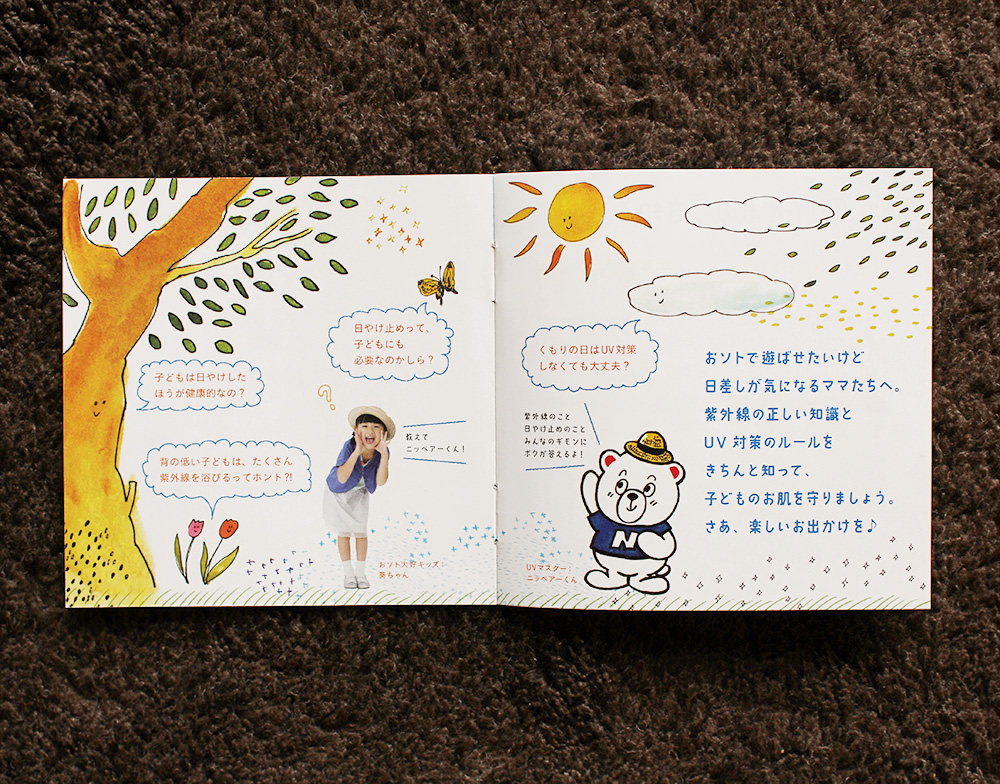 日やけ止めって、
子どもにも
必要なのかしら？
子どもは日やけした
ほうが健康的なの？
?
教えて
ニッペアーくん！
背の低い子どもは、たくさん
紫外線を浴びるってホント?!
おソト大好キッズ
葵ちゃん
くもりの日はUV対策
しなくても大丈夫？
紫外線のこと
日やけ止めのこと
みんなのギモンに
ボクが答えるよ！
N
UVマスター
ニッペアーくん
おソトで遊ばせたいけど
日差しが気になるママたちへ。
紫外線の正しい知識と
UV 対策のルールを
きちんと知って、
子どものお肌を守りましょう。
さあ、楽しいお出かけを♪